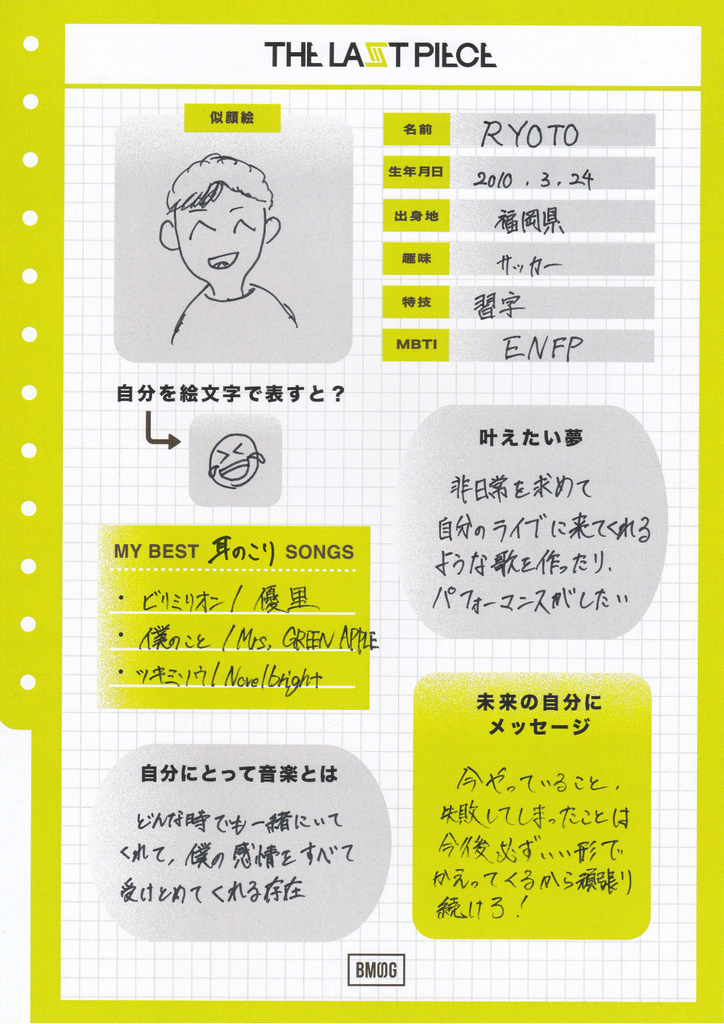 THE LAST PIECE
似顔絵
名前 RYOTO
生年月日 2010.3.24
出身地 福岡県
趣味 サッカー
特技 習字
MBTI ENFP
自分を絵文字で表すと？
叶えたい夢
非日常を求めて
自分のライブに来てくれる
ような歌を作ったり、
パフォーマンスがしたい
MY BEST 耳のこり SONGS
・ビリミリオン/優里
・僕のこと/Mrs. GREEN APPLE
・ツキミソウ/Novelbright
未来の自分に
メッセージ
今やっていること、
失敗してしまったことは
今後必ずいい形で
かえってくるから頑張り
続けろ！
自分にとって音楽とは
どんな時でも一緒にいて
くれて、僕の感情をすべて
受けとめてくれる存在
BMSG